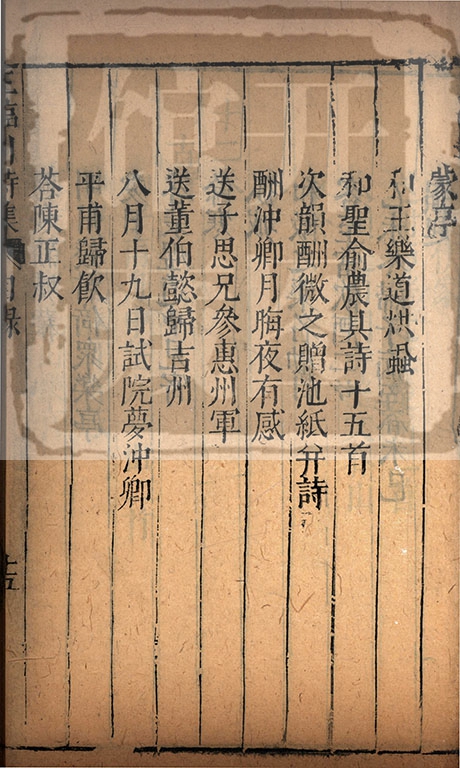 蒙亭
和王樂道烘蝨
和聖俞農具詩十五首
次韻酬微之贈池紙并詩
酬沖卿月晦夜有感
送子思兄參惠州軍
送董伯懿歸吉州
八月十九日試院夢沖卿
平甫歸飲
荅陳正叔